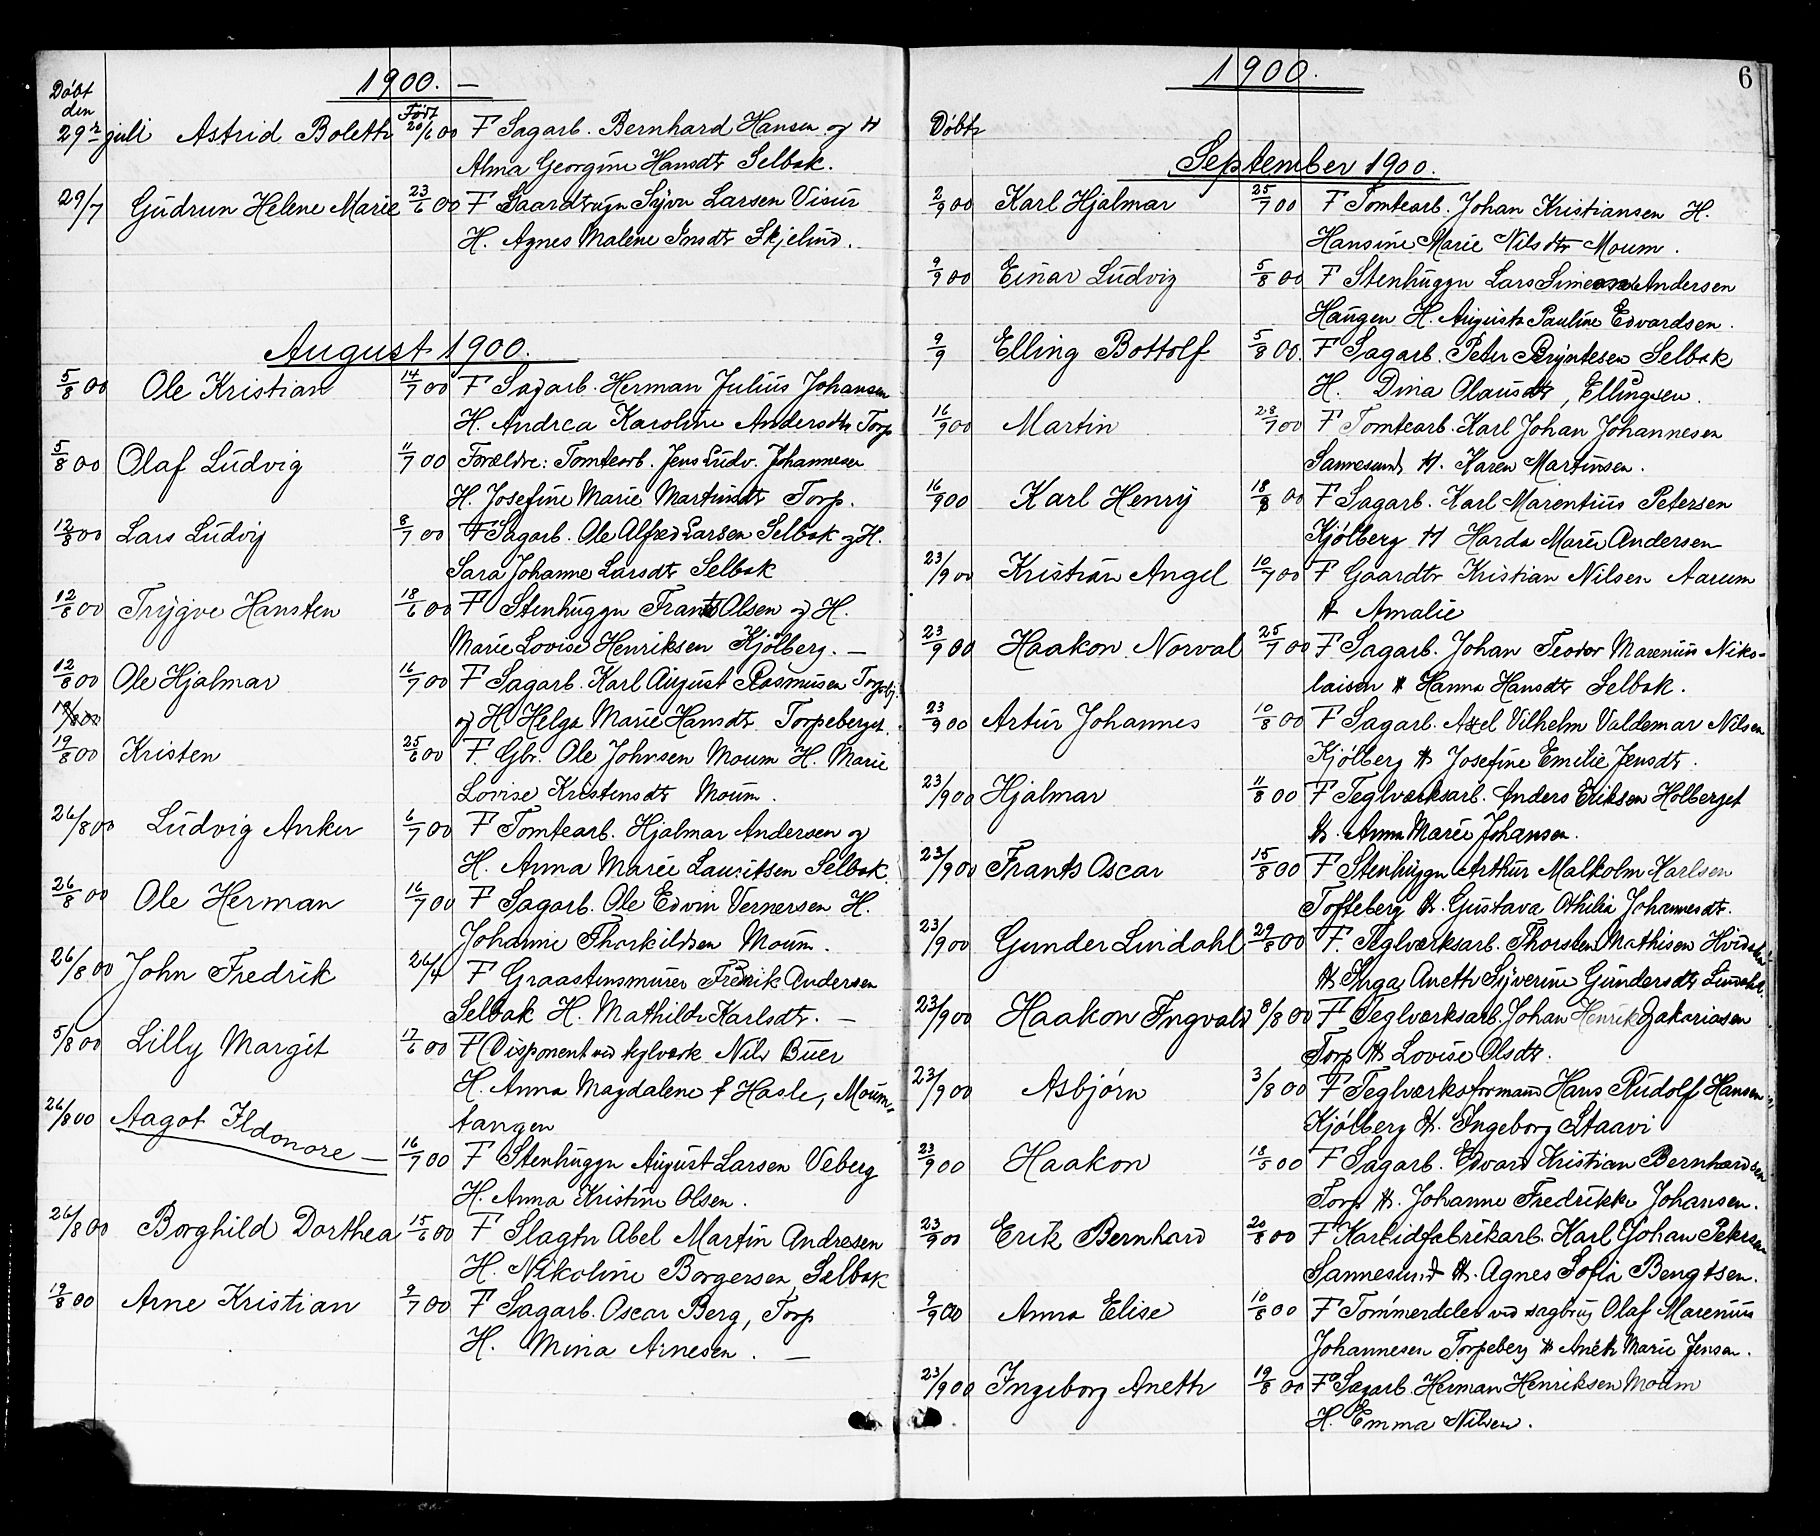 1900. —
Døbt
den
Født
29de juli Astrid Bolette 20/6 00 F Sagarb. Bernhard Hansen og H
Alma Georgine Hansdtr Selbak.
29/7 Gudrun Helene Marie 23/6 00 F Larsen
H. Agnes Malene
August 1900.
5/8 00 Ole Kristian 14/7 00 F Sagarb. Herman Julius Johansen
H. Andrea Karoline Andersdtr Torp
5/8 00 Olaf Ludvig 11/7 00 Forældre: Tomtearb. Jens Ludv. Johannesen
H. Josefine Marie Martinsdtr Torp.
12/8 00 Lars Ludvig 8/7 00 F Sagarb. Ole Alfred Larsen Selbak og H.
Sara Johanne Larsdtr Selbak
12/8 00 Trygve Hansten 18/6 00 F Stenhugger Frants Olsen og H.
Marie Lovise Henriksen Kjølberg. —
12/8 00 Ole Hjalmar 16/7 00 F Sagarb. Karl August Rasmusen
og H Helga Marie Hansdtr Torpeberget.
19/8 00 Kristen 25/6 00 F. Gbr. Ole Johnsen Moum H. Marie
Lovise Kristensdtr Moum.
26/8 00 Ludvig Anker 6/7 00 F Tomtearb. Hjalmar Andersen og
H. Anna Marie Lauritsen Selbak.
26/8 00 Ole Herman 16/7 00 F Sagarb. Ole Edvin Vernersen H.
Johanne Thorkildsen Moum.
26/8 00 John Fredrik 26/4 F Graastensmurer Fredrik Andersen
Selbak H. Mathilde Karlsdtr. —
5/8 00 Lilly Margit 17/6 00 F Disponent ved teglverk Nils Buer
H. Anna Magdalene f Hasle, Moum-
26/8 00 Aagot Ildonore — tangen
16/7 00 F Stenhugger August Larsen Veberg
H. Anna Kristine Olsen.
26/8 00 Borghild Dorthea 15/6 00 F Slagter Abel Martin Andresen
H. Nikoline Borgersen, Selbak
19/8 00 Arne Kristian 9/7 00 F Sagarb. Oscar Berg, Torp
H. Mina Arnesen. —
1900. 6
Døbte
September 1900.
2/9 00 Karl Hjalmar 25/7 00 F Tomtearb. Johan Kristiansen H.
Hansine Marie Nilsdtr Moum.
9/9 00 Einar Ludvig 5/8 00 F Stenhugger Lars Andersen
Haugen H. Augusta Pauline Edvardsen.
9/9 Elling Bottolf 5/8 00. F Sagarb. Peter Selbak
H. Dina Olausdtr, Ellingsen.
16/9 00 Martin 28/7 00 F Tomtearb. Karl Johan Johannesen
Sannesund H. Karen Martinsen.
16/9 00 Karl Henry 18/8 00 F Sagarb. Karl Marentius Petersen
Kjølberg H Harda Marie Andersen
23/9 00 Kristian Angel 10/7 00 F Gaardbr Kristian Nilsen Aarum
H Amalie
23/9 00 Haakon Norval 25/7 00 F Sagarb. Johan Teodor Marenius Niko-
laisen H Hanna Hansdtr Selbak.
23/9 00 Artur Johannes 10/8 00 F Sagarb. Axel Vilhelm Valdemar Nilsen
Kjølberg H Josefine Emilie Jensdtr.
23/9 00 Hjalmar 11/8 00 F Teglverksarb. Anders Eriksen Holberget
H. Anna Marie Johansen.
23/9 00 Frants Oscar 15/8 00 F Stenhugger Arthur Malkolm Karlsen
Tofteberg H. Gustava Othilia Johannesdtr.
23/9 00 Gunder Lindahl 29/8 00 F. Teglverksarb. Thorsten Mathisen
H Inga Anette Syverine Gundersdtr Lindahl.
23/9 00 Haakon Ingvald 8/8 00 F Teglverksarb. Johan Henrik Zakariasen
Torp H Lovise Olsdtr.
23/9 00 Asbjørn 3/8 00 F Teglverksformand Hans Rudolf Hansen
Kjølberg H. Ingeborg Staavi
23/9 00 Haakon 18/5 00 F Sagarb. Edvard Kristian Bernhardsen
Torp H. Johanne Fredrikke Johansen.
23/9 00 Erik Bernhard 20/8 00 F Karbidfabrikarb. Karl Johan Petersen
Sannesund H. Agnes Sofia Bengtsen.
9/9 00 Anna Elise 10/8 00 F Tømmerdeler ved sagbrug Olaf Marenius
Johannesen Torpeberg H Anette Marie Jensen.
23/9 00 Ingeborg Anette 19/8 00 F Sagarb. Herman Henriksen Moum
H. Emma Nilsen.